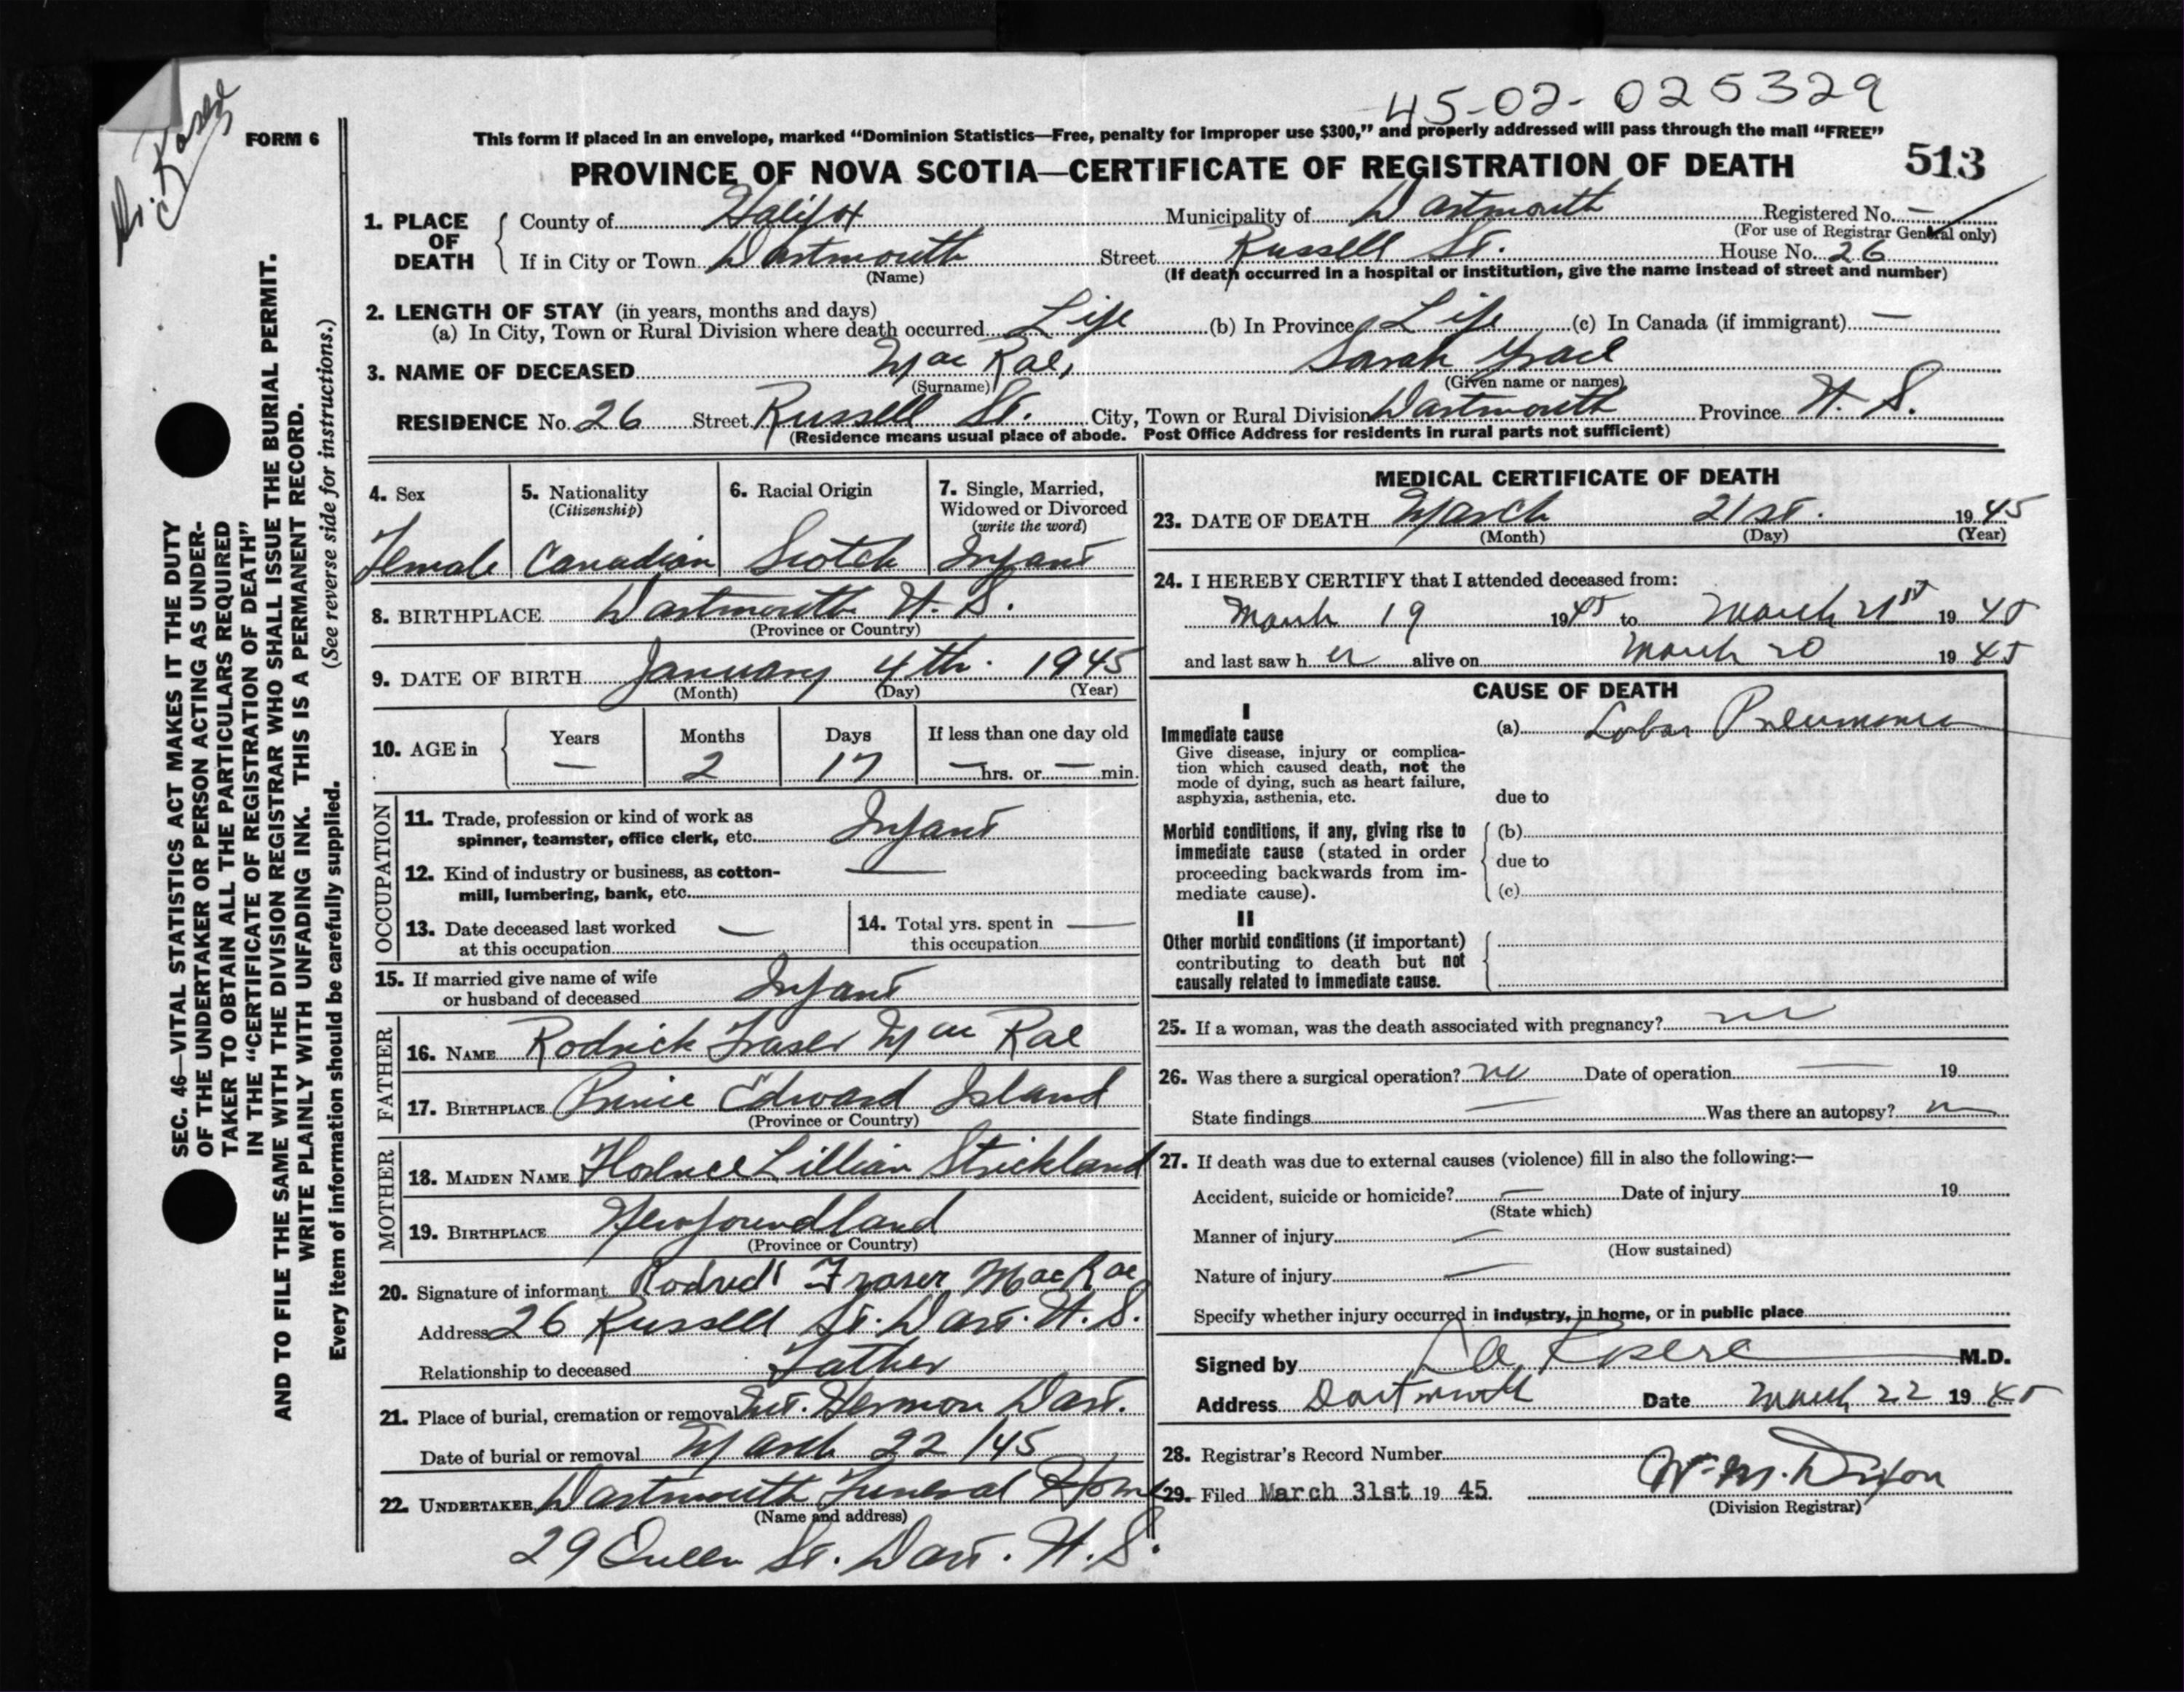 45-02-025329
Dr.
FORM 6
This form if placed in an envelope, marked “Dominion Statistics—Free, penalty for improper use $300,” and properly addressed will pass through the mail “FREE”
PROVINCE OF NOVA SCOTIA—CERTIFICATE OF REGISTRATION OF DEATH 513
1. PLACE OF DEATH County of Halifax Municipality of Dartmouth Registered No. —
(For use of Registrar General only)
If in City or Town Dartmouth Street Russell St. House No. 26
(Name) (If death occurred in a hospital or institution, give the name instead of street and number)
2. LENGTH OF STAY (in years, months and days)
(a) In City, Town or Rural Division where death occurred Life (b) In Province Life (c) In Canada (if immigrant) —
3. NAME OF DECEASED Mac Rae, Sarah Grace
(Surname) (Given name or names)
RESIDENCE No. 26 Street Russell St. City, Town or Rural Division Dartmouth Province N. S.
(Residence means usual place of abode. Post Office Address for residents in rural parts not sufficient)
SEC. 46—VITAL STATISTICS ACT MAKES IT THE DUTY
OF THE UNDERTAKER OR PERSON ACTING AS UNDER-
TAKER TO OBTAIN ALL THE PARTICULARS REQUIRED
IN THE “CERTIFICATE OF REGISTRATION OF DEATH”
AND TO FILE THE SAME WITH THE DIVISION REGISTRAR WHO SHALL ISSUE THE BURIAL PERMIT.
WRITE PLAINLY WITH UNFADING INK. THIS IS A PERMANENT RECORD.
Every item of information should be carefully supplied. (See reverse side for instructions.)
4. Sex 5. Nationality 6. Racial Origin 7. Single, Married,
(Citizenship) Widowed or Divorced
(write the word)
Female Canadian Scotch Infant
8. BIRTHPLACE Dartmouth N. S.
(Province or Country)
9. DATE OF BIRTH January 4th. 1945
(Month) (Day) (Year)
10. AGE in Years Months Days If less than one day old
— 2 17 — hrs. or — min.
OCCUPATION
11. Trade, profession or kind of work as
spinner, teamster, office clerk, etc. Infant
12. Kind of industry or business, as cotton-
mill, lumbering, bank, etc. —
13. Date deceased last worked — 14. Total yrs. spent in —
at this occupation this occupation
15. If married give name of wife
or husband of deceased Infant
FATHER
16. NAME Rodrick Fraser Mac Rae
17. BIRTHPLACE Prince Edward Island
(Province or Country)
MOTHER
18. MAIDEN NAME Florence Lillian Strickland
19. BIRTHPLACE Newfoundland
(Province or Country)
20. Signature of informant Rodrick Fraser MacRae
Address 26 Russell St. Dart. N. S.
Relationship to deceased Father
21. Place of burial, cremation or removal Mt. Hermon Dart.
Date of burial or removal March 22/45
22. UNDERTAKER Dartmouth Funeral Home
(Name and address)
29 Queen St. Dart. N. S.
MEDICAL CERTIFICATE OF DEATH
23. DATE OF DEATH March 21st. 1945
(Month) (Day) (Year)
24. I HEREBY CERTIFY that I attended deceased from:
March 19 1945 to March 21st 1945
and last saw her alive on March 20 1945
CAUSE OF DEATH
I
Immediate cause (a) Lobar Pneumonia
Give disease, injury or complica-
tion which caused death, not the
mode of dying, such as heart failure,
asphyxia, asthenia, etc. due to
Morbid conditions, if any, giving rise to (b)
immediate cause (stated in order due to
proceeding backwards from im-
mediate cause). (c)
II
Other morbid conditions (if important)
contributing to death but not
causally related to immediate cause.
25. If a woman, was the death associated with pregnancy? no
26. Was there a surgical operation? no Date of operation — 19
State findings — Was there an autopsy? no
27. If death was due to external causes (violence) fill in also the following:—
Accident, suicide or homicide? — Date of injury 19
(State which)
Manner of injury —
(How sustained)
Nature of injury —
Specify whether injury occurred in industry, in home, or in public place
Signed by M.D.
Address Dartmouth Date March 22 1945
28. Registrar's Record Number
29. Filed March 31st 19 45. W. M. Dixon
(Division Registrar)